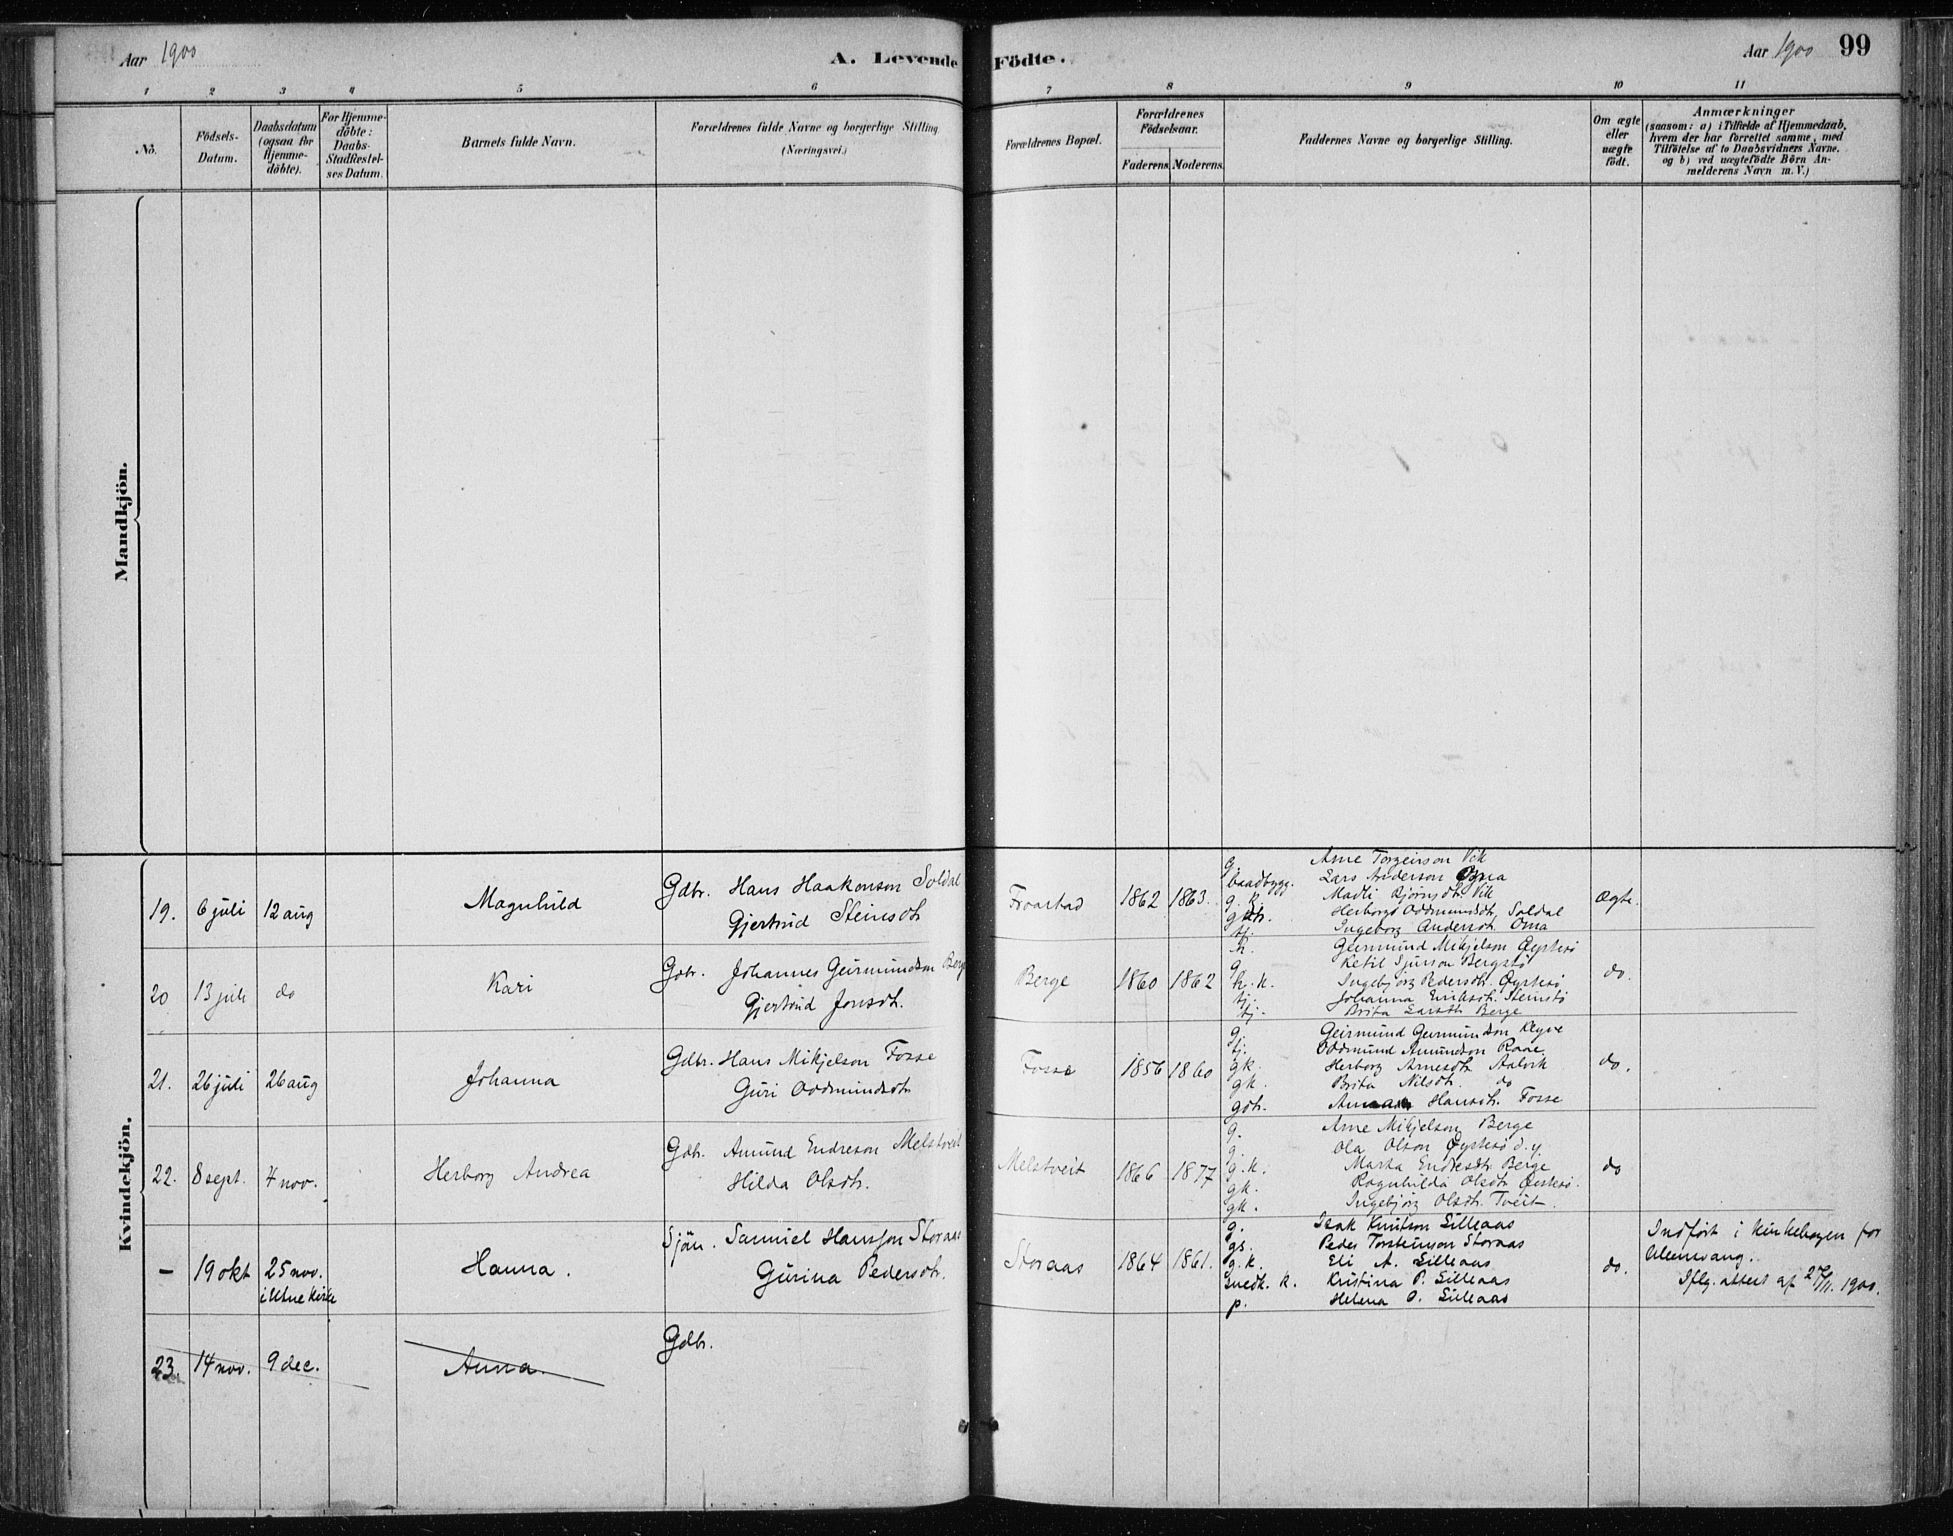 Aar 1900
A. Levende Födte.
Aar 1900 99
1 2 3 4 5 6 7 8 9 10 11
No.
Födsels-
Datum.
Daabsdatum
(ogsaa for
Hjemme-
döbte).
For Hjemme-
döbte:
Daabs-
Stadfæstel-
ses Datum.
Barnets fulde Navn.
Forældrenes fulde Navne og borgerlige Stilling
(Næringsvei.)
Forældrenes Bopæl.
Forældrenes
Födselsaar.
Faderens. Moderens.
Faddernes Navne og borgerlige Stilling.
Om ægte
eller
uægte
födt.
Anmærkninger
(saasom: a) i Tilfælde af Hjemmedaab,
hvem der har forrettet samme, med
Tilföielse af to Daabsvidners Navne.
og b) ved uægtefödte Börn An-
melderens Navn m. V.)
Mandkjön.
Kvindekjön.
19. 6 juli 12 aug
Magnhild
Gdbr. Hans Haakonson Soldal
Gjertrud Steinsdt.
1862 1863.
g. Arne Torgeirson Vik
baadbygg. Lars Anderson
g. k. Madli Bjørnsdt. Vik
Herborg Oddmundsdt. Soldal
tj. Ingeborg Andersdt. Oma
Ægte.
20 13 juli do
Kari
Gdbr. Johannes Geirmundson Berge
Gjertrud Jonsdt.
Berge 1860 1862
k. Geirmund Mikjelson Øystesø
g. Ketil Sjurson Bergstø
k. k. Ingebjørg Pedersdt. Øystesø
tj. Johanna Eriksdt. Steinstø
tj. Brita Larsdt. Berge
do.
21. 26 juli 26 aug
Johanna
Gdbr. Hans Mikjelson Fosse
Guri Oddmundsdt.
Fosse 1856 1860
g. Geirmund Geirmundson
tj. Oddmund Amundson
gk. Herborg Arnesdt. Aalvik
gk. Brita Nilsdt. do
gdt. Hansdt. Fosse
do.
22. 8 sept. 4 nov.
Herborg Andrea
Gdbr. Amund Endreson Melstveit
Hilda Olsdt.
Melstveit 1866 1877
g. Arne Mikjelson Berge
g. Ola Olson Øystesø d. y.
g. k. Marta Endresdt. Berge
gk. Ragnhilda Olsdt. Øystesø.
gk. Ingebjørg Olsdt. Tveit.
do
- 19 okt 25 nov.
i Utne kirke
Hanna.
Sjöm. Samuel Hansson Storaas
Gurina Pedersdt.
Storaas 1864 1861.
g. Isak Knutson Lilleaas
gs. Peder Torsteinson Storaas
g. k. Eli A. Lilleaas
Snedk. k. Kristina P. Lilleaas
p. Helena O. Lilleaas
do.
Indført i kirkebogen for
Ullensvang.
Iflg. attest af 27/11. 1900.
23. 14 nov. 9 dec.
Anna.
Gdbr.